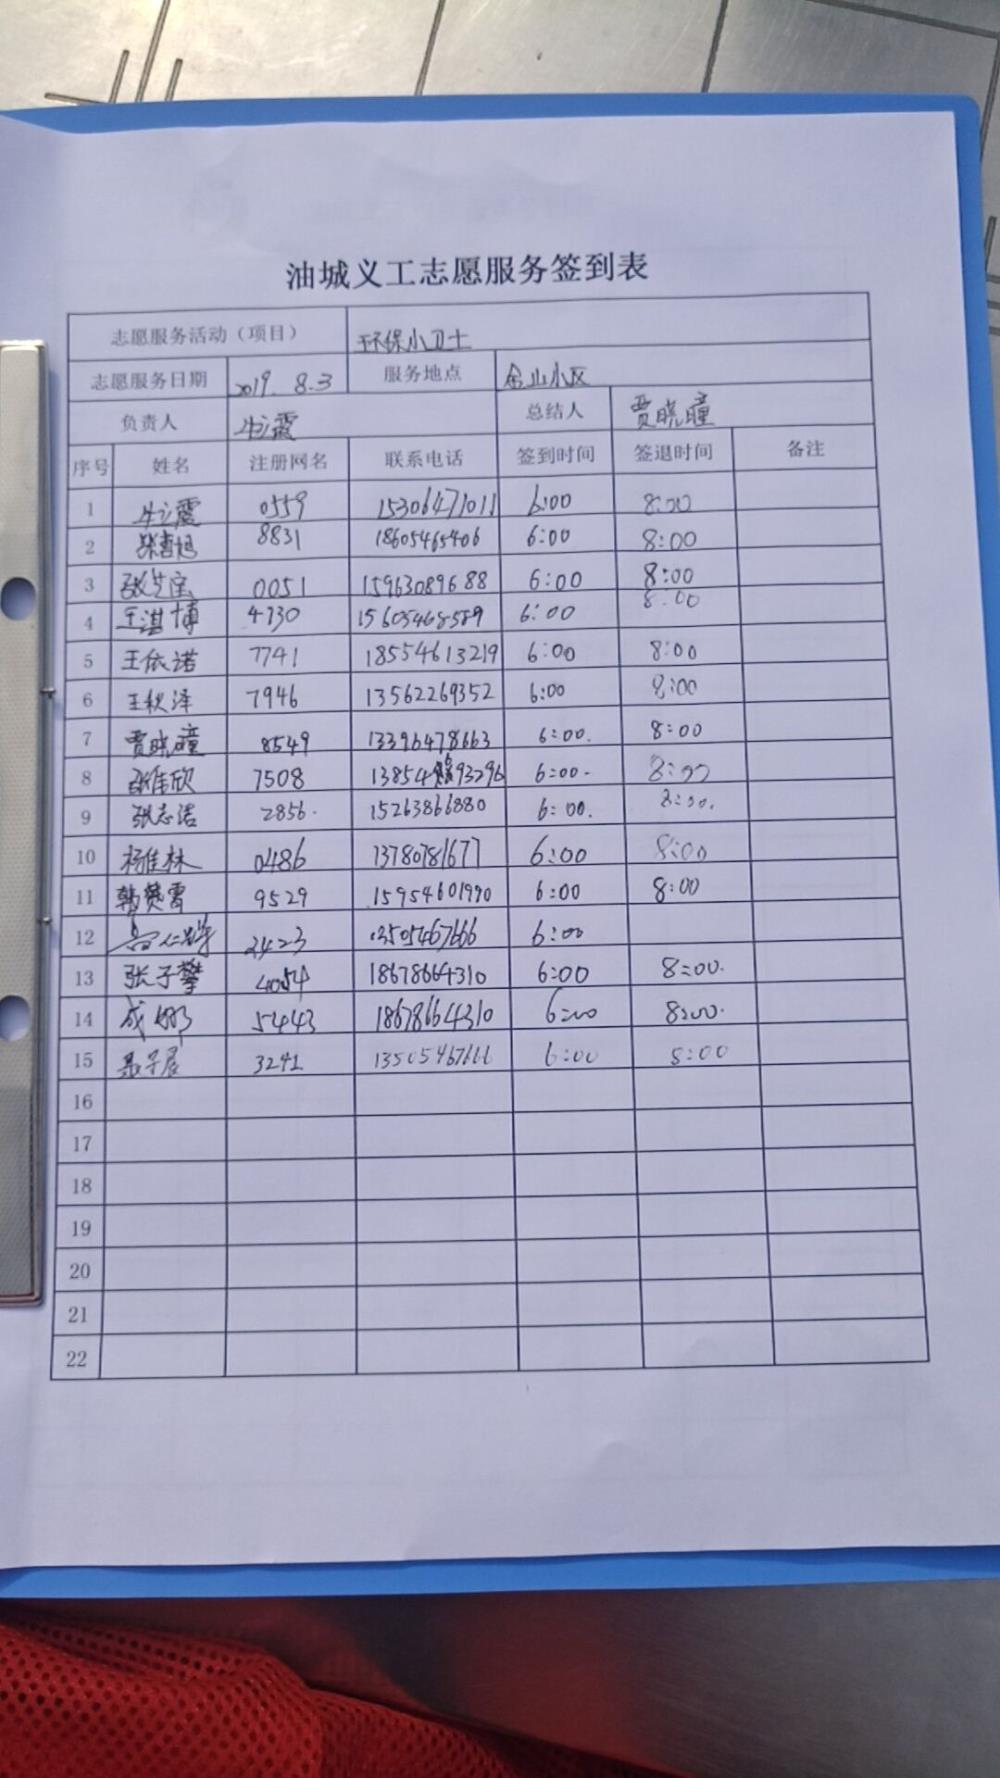 油城义工志愿服务签到表
志愿服务活动（项目） 环保小卫士
志愿服务日期 2019. 8.3 服务地点 金山小区
负责人 牛立霞 总结人 贾晓瞳
序号 姓名 注册网名 联系电话 签到时间 签退时间 备注
1 牛立霞 0559 15306471011 6:00 8:00
2 8831 18605465406 6:00 8:00
3 0051 15963089688 6:00 8:00
4 王淇博 4730 15605468589 6:00 8:00
5 王依诺 7741 18554613219 6:00 8:00
6 王秋泽 7946 13562269352 6:00 8:00
7 贾晓瞳 8549 13396478663 6:00. 8:00
8 张佳欣 7508 13854 93296 6:00. 8:00
9 张志浩 2856. 15263866880 6:00. 8:00.
10 杨佳林 0486 13780781677 6:00 8:00
11 韩赞雷 9529 15954601990 6:00 8:00
12 2423 13505467666 6:00
13 张子攀 4054 18678664310 6:00 8:00.
14 成娜 5443 18678664310 6:00 8:00.
15 3241 13505467666 6:00 8:00
16
17
18
19
20
21
22